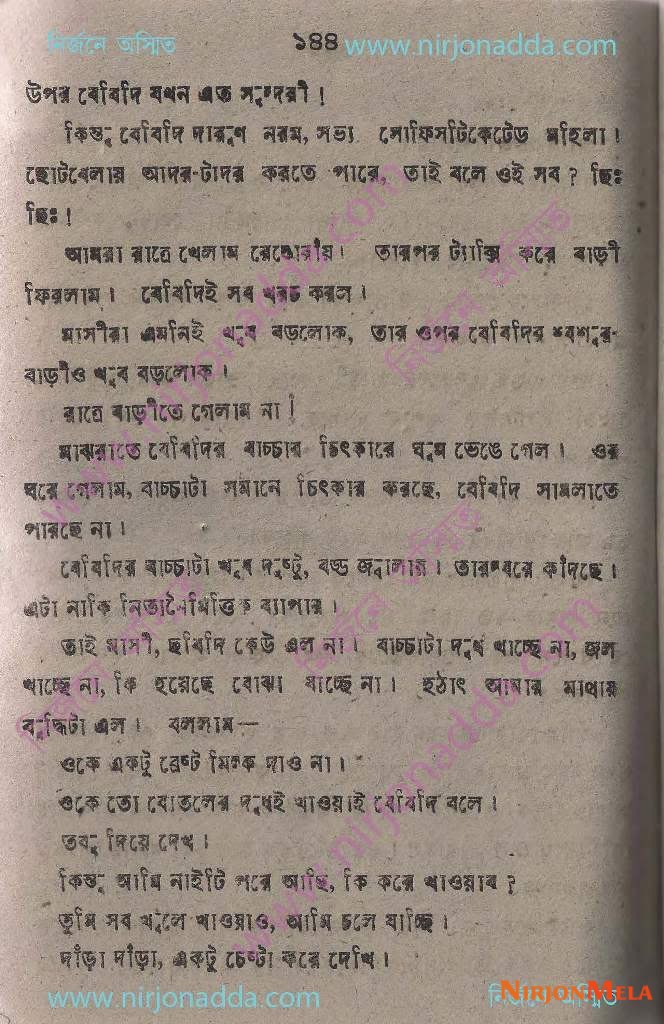 নির্জনে অস্মিত ১৪৪ www.nirjonadda.com
উপর বেবিদি যখন এত সুন্দরী !
কিন্তু বেবিদি দারুণ নরম, সভ্য সোফিসটিকেটেড মহিলা ।
ছোটবেলায় আদর-টাদর করতে পারে, তাই বলে ওই সব ? ছিঃ
ছিঃ !
আমরা রাত্রে খেলাম রেস্তোরাঁয় । তারপর ট্যাক্সি করে বাড়ী
ফিরলাম । বেবিদিই সব খরচ করল ।
মাসীরা এমনিই খুব বড়লোক, তার ওপর বেবিদির শ্বশুর-
বাড়ীও খুব বড়লোক ।
রাত্রে বাড়ীতে গেলাম না !
মাঝরাতে বেবিদির বাচ্চার চিৎকারে ঘুম ভেঙে গেল । ওর
ঘরে গেলাম, বাচ্চাটা সমানে চিৎকার করছে, বেবিদি সামলাতে
পারছে না ।
বেবিদির বাচ্চাটা খুব দুষ্টু, বড্ড জ্বালায় । তারস্বরে কাঁদছে ।
এটা নাকি নিত্যনৈমিত্তিক ব্যাপার ।
তাই মাসী, ছবিদি কেউ এল না । বাচ্চাটা দুধ খাচ্ছে না, জল
খাচ্ছে না, কি হয়েছে বোঝা যাচ্ছে না । হঠাৎ আমার মাথায়
বুদ্ধিটা এল । বললাম—
ওকে একটু ব্রেষ্ট মিল্ক দাও না ।
ওকে তো বোতলের দুধই খাওয়াই বেবিদি বলে ।
তবু দিয়ে দেখ ।
কিন্তু আমি নাইটি পরে আছি, কি করে খাওয়াব ?
তুমি সব খুলে খাওয়াও, আমি চলে যাচ্ছি ।
দাঁড়া দাঁড়া, একটু চেষ্টা করে দেখি ।
www.nirjonadda.com নির্জনে অস্মিত
NIRJONMELA
www.nirjonadda.com
নির্জনে অস্মিত
নির্জনে অস্মিত
নির্জনে অস্মিত
www.nirjonadda.com